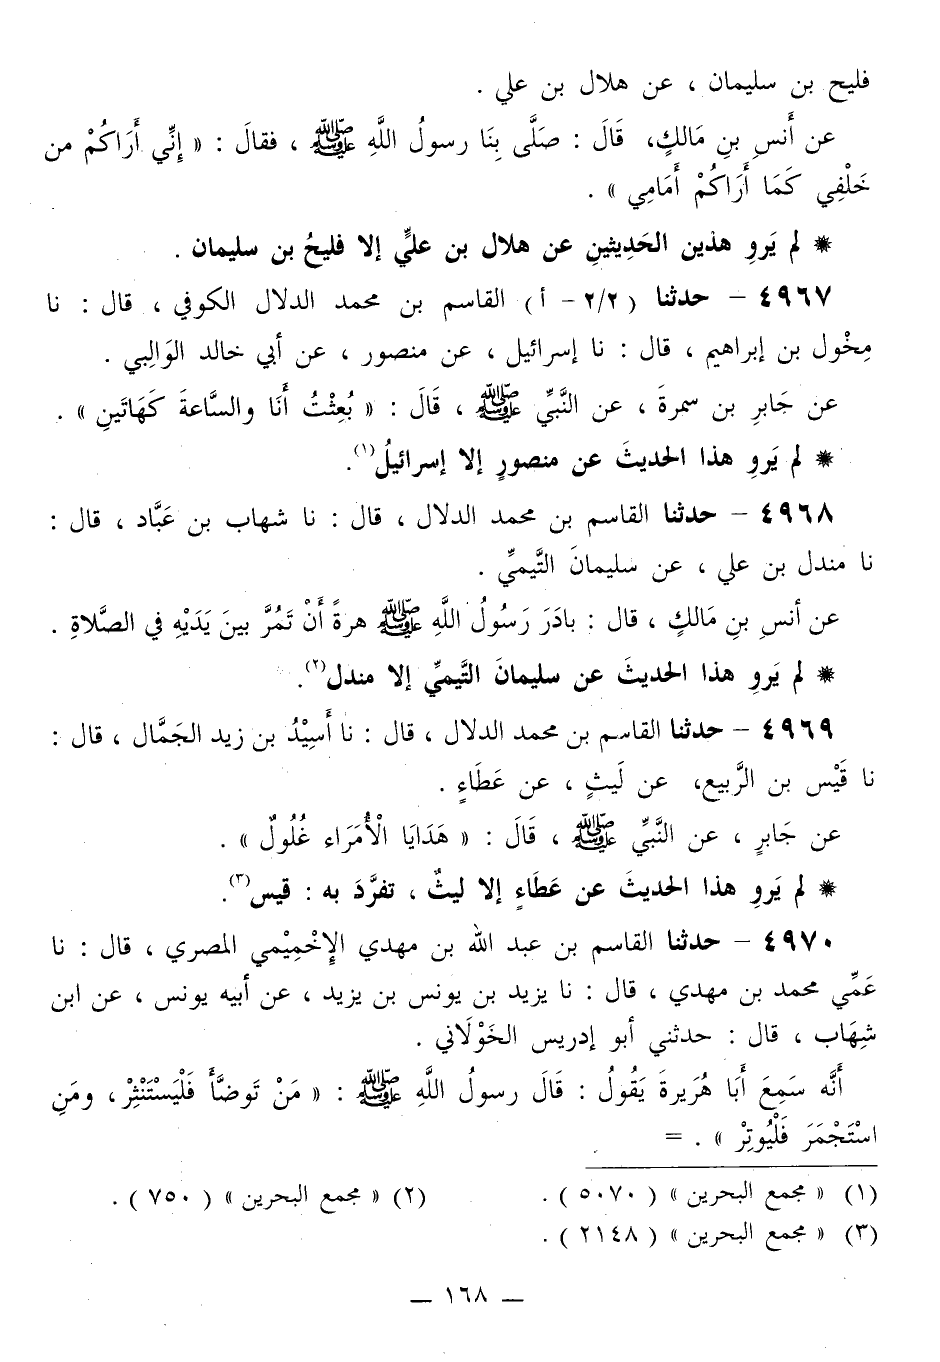 فليح بن سليمان ، عن هلال بن علي .
عن أَنسِ بنِ مَالكٍ، قَالَ : صَلَّى بِنَا رسولُ اللَّهِ ﷺ ، فقالَ : « إِنِّي أَرَاكُمْ من
خَلْفِي كَمَا أَرَاكُمْ أَمَامِي » .
* لم يَروِ هذين الحَدِيثينِ عن هلال بن عليٍّ إلا فليحُ بن سليمان .
٤٩٦٧ – حدثنا ( ٢/٢ - أ ) القاسم بن محمد الدلال الكوفي ، قال : نا
مِخْول بن إبراهيم ، قال : نا إسرائيل ، عن منصور ، عن أبي خالد الوَالِبي .
عن جَابرِ بن سمرةَ ، عن النَّبيِّ ﷺ ، قَالَ : « بُعِثْتُ أَنَا والسَّاعةَ كَهَاتَينِ » .
* لم يَروِ هذا الحديثَ عن منصورٍ إلا إسرائيلُ(١).
٤٩٦٨ – حدثنا القاسم بن محمد الدلال ، قال : نا شهاب بن عَبَّاد ، قال :
نا مندل بن علي ، عن سليمانَ التَّيميِّ .
عن أنسِ بنِ مَالكٍ ، قال : بادَرَ رَسُولُ اللَّهِ ﷺ هرةً أَنْ تَمُرَّ بينَ يَدَيْهِ في الصَّلاةِ .
* لم يَروِ هذا الحديثَ عن سليمانَ التَّيميِّ إلا مندل(٢).
٤٩٦٩ – حدثنا القاسم بن محمد الدلال ، قال : نا أَسِيْدُ بن زيد الجَمَّال ، قال :
نا قَيْس بن الرَّبيع، عن لَيثٍ ، عن عَطَاءٍ .
عن جَابرٍ ، عن النَّبيِّ ﷺ ، قَالَ : « هَدَايَا الْأُمَرَاء غُلُولٌ » .
* لم يَروِ هذا الحديثَ عن عَطَاءٍ إلا ليثٌ ، تفرَّدَ به : قيس(٣).
٤٩٧٠ – حدثنا القاسم بن عبد الله بن مهدي الإِخْمِيْمي المصري ، قال : نا
عَمِّي محمد بن مهدي ، قال : نا يزيد بن يونس بن يزيد ، عن أبيه يونس ، عن ابن
شِهَاب ، قال : حدثني أبو إدريس الخَوْلَاني .
أَنَّه سَمِعَ أَبَا هُرَيرةَ يَقُولُ : قَالَ رسولُ اللَّهِ ﷺ : « مَنْ تَوضَّأَ فَلْيَسْتَنْثِرْ ، ومَنِ
اسْتَجْمَرَ فَلْيُوتِرْ » . =
(١) « مجمع البحرين » ( ٥٠٧٠ ) . (٢) « مجمع البحرين » ( ٧٥٠ ) .
(٣) « مجمع البحرين » ( ٢١٤٨ ) .
— ١٦٨ —